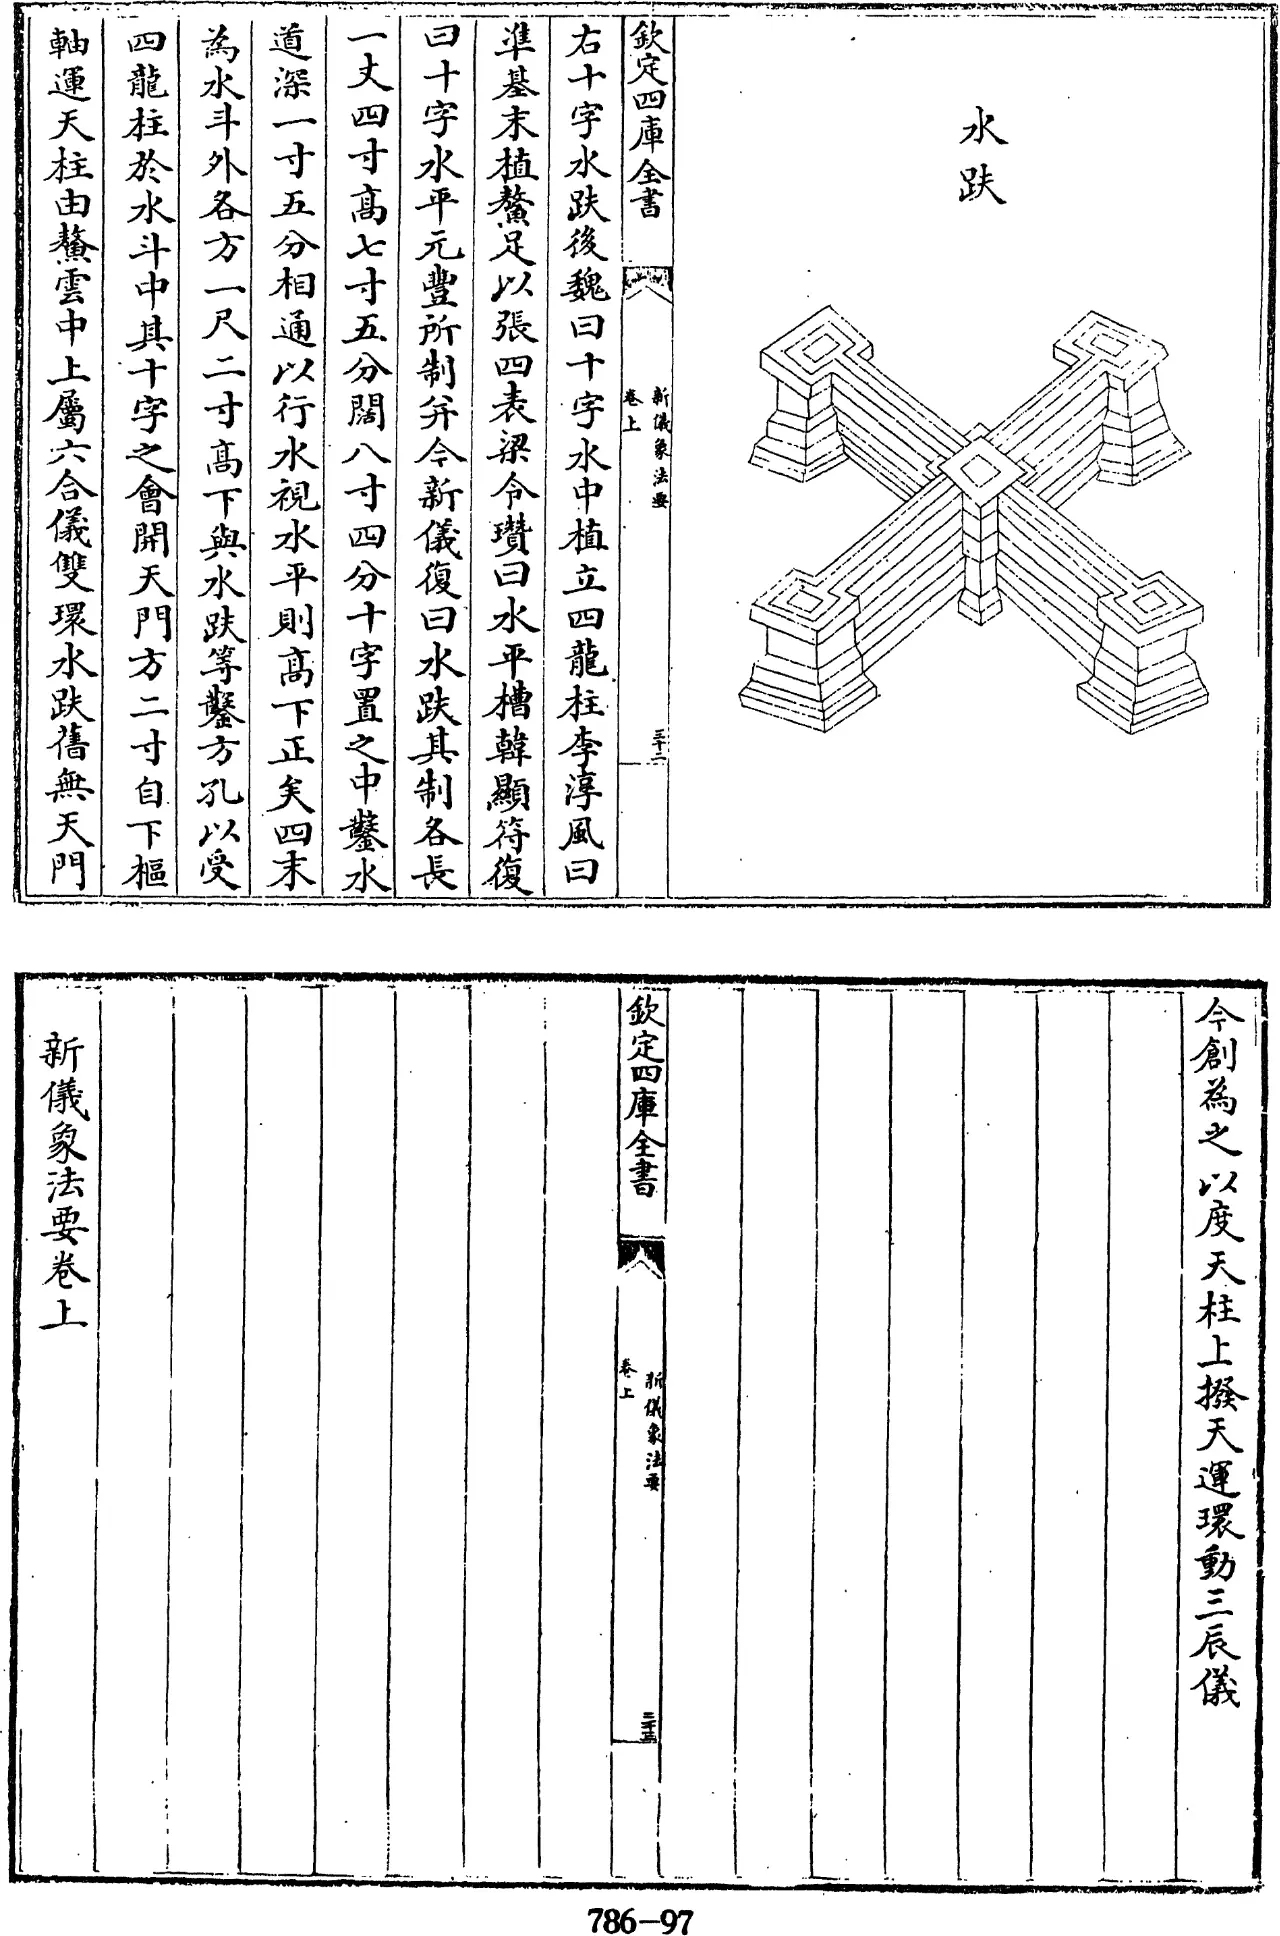 水趺
欽定四庫全書
新儀象法要
卷上
三十二
右十字水趺後魏曰十字水中植立四龍柱李淳風曰
準基末植鰲足以張四表梁令瓚曰水平槽韓顯符復
曰十字水平元豐所制并今新儀復曰水趺其制各長
一丈四寸高七寸五分闊八寸四分十字置之中鑿水
道深一寸五分相通以行水視水平則高下正矣四末
為水斗外各方一尺二寸高下與水趺等鑿方孔以受
四龍柱於水斗中其十字之會開天門方二寸自下樞
軸運天柱由鰲雲中上屬六合儀雙環水趺舊無天門
今創為之以度天柱上撥天運環動三辰儀
欽定四庫全書
新儀象法要
卷上
三十三
新儀象法要卷上
786-97